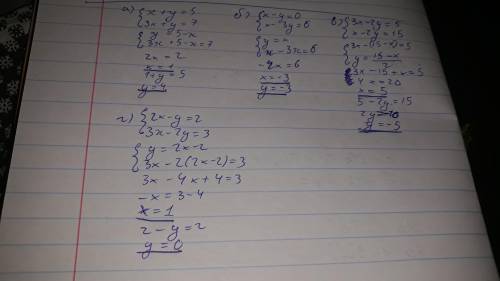 а) { x + y = 5
3x + y = 7
{ y = 5 - x
3x + 5 - x = 7
2x = 2
x = 1
1 + y = 5
y = 4
б) { x - y = 0
x - 3y = 6
{ y = x
x - 3x = 6
-2x = 6
x = -3
y = -3
в) { 3x - 2y = 5
x - 2y = 15
{ 3x - (15 - x) = 5
y = 15 - x / 2
3x - 15 + x = 5
4x = 20
x = 5
5 - 2y = 15
y = -5
г) { 2x - y = 2
3x - 2y = 3
{ y = 2x - 2
3x - 2(2x - 2) = 3
3x - 4x + 4 = 3
-x = 3 - 4
x = 1
2 - y = 2
y = 0